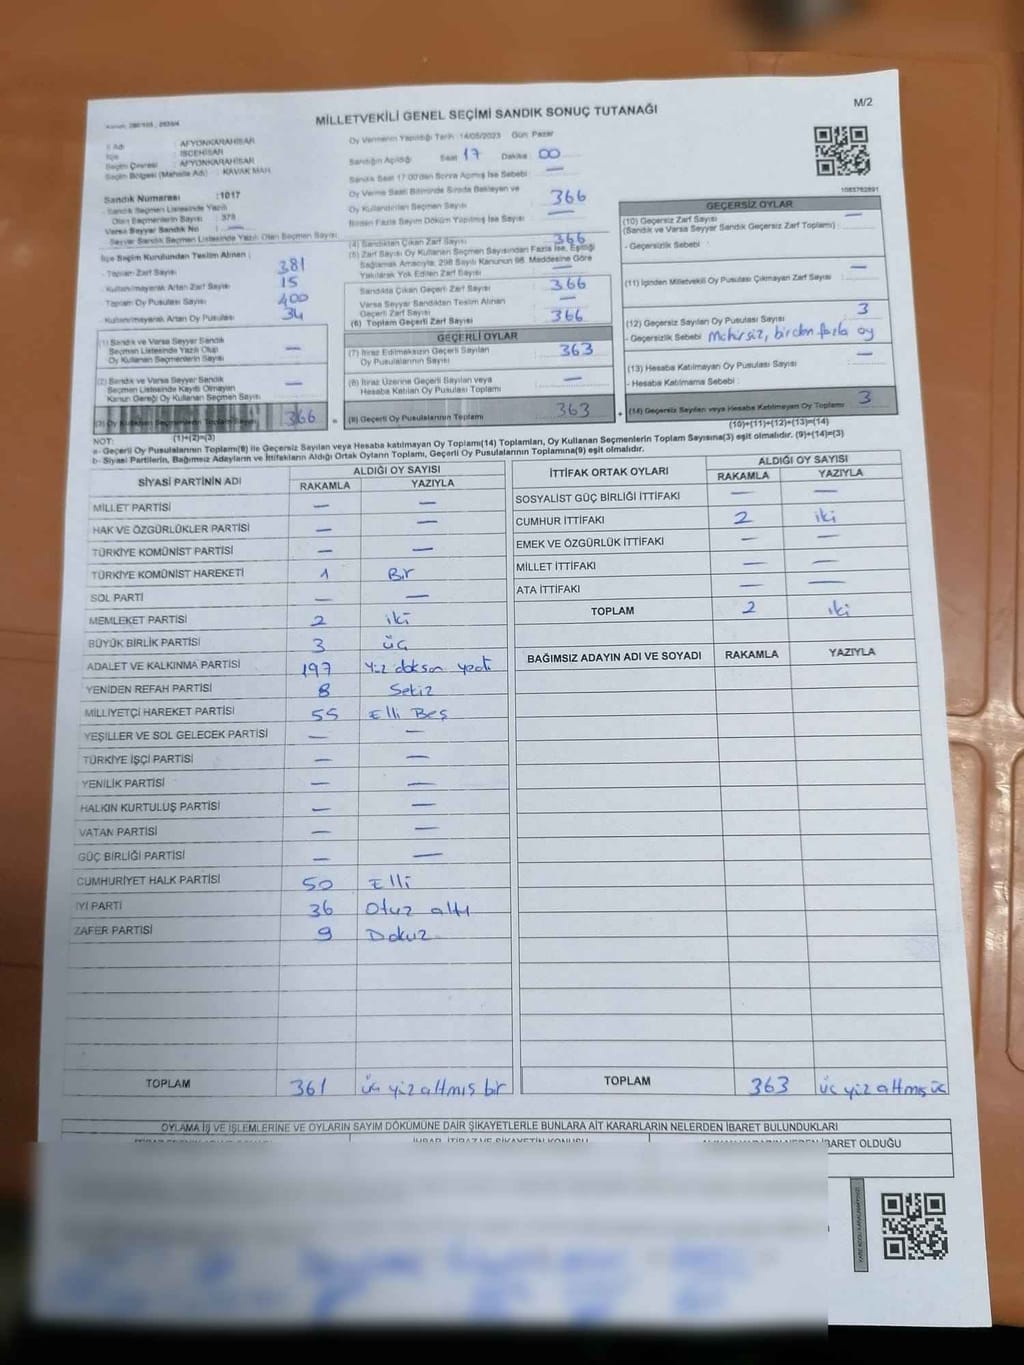 MİLLETVEKİLİ GENEL SEÇİMİ SANDIK SONUÇ TUTANAĞI
M/2
İl Adı : AFYONKARAHİSAR
İlçe : İSCEHİSAR
Seçim Çevresi : AFYONKARAHİSAR
Seçim Bölgesi (Mahalle Adı) : KAVAK MAH.
Sandık Numarası :1017
Sandık Seçmen Listesinde Yazılı
Olan Seçmenlerin Sayısı : 378
Varsa Seyyar Sandık No : —
Seyyar Sandık Seçmen Listesinde Yazılı Olan Seçmen Sayısı
İlçe Seçim Kurulundan Teslim Alınan ;
- Toplam Zarf Sayısı 381
- Kullanılmayarak Artan Zarf Sayısı 15
- Toplam Oy Pusulası Sayısı 400
- Kullanılmayarak Artan Oy Pusulası 34
(1) Sandık ve Varsa Seyyar Sandık
Seçmen Listesinde Yazılı Olup
Oy Kullanan Seçmenlerin Sayısı —
(2) Sandık ve Varsa Seyyar Sandık
Seçmen Listesinde Kayıtlı Olmayan
Kanun Gereği Oy Kullanan Seçmen Sayısı —
(3) Oy Kullanan Seçmenlerin Toplam Sayısı 366 =
(1)+(2)=(3)
Oy Vermenin Yapıldığı Tarih :14/05/2023 Gün: Pazar
Sandığın Açıldığı Saat 17 Dakika 00
Sandık Saat 17:00'den Sonra Açılmış İse Sebebi —
Oy Verme Saati Bitiminde Sırada Bekleyen ve
Oy Kullandırılan Seçmen Sayısı 366
Birden Fazla Sayım Döküm Yapılmış İse Sayısı —
(4) Sandıktan Çıkan Zarf Sayısı 366
(5) Zarf Sayısı Oy Kullanan Seçmen Sayısından Fazla İse, Eşitliği
Sağlamak Amacıyla, 298 Sayılı Kanunun 98. Maddesine Göre
Yakılarak Yok Edilen Zarf Sayısı —
Sandıkta Çıkan Geçerli Zarf Sayısı 366
Varsa Seyyar Sandıktan Teslim Alınan
Geçerli Zarf Sayısı —
(6) Toplam Geçerli Zarf Sayısı 366
GEÇERLİ OYLAR
(7) İtiraz Edilmeksizin Geçerli Sayılan
Oy Pusulalarının Sayısı 363
(8) İtiraz Üzerine Geçerli Sayılan veya
Hesaba Katılan Oy Pusulası Toplamı —
(9) Geçerli Oy Pusulalarının Toplamı 363 +
1083762891
GEÇERSİZ OYLAR
(10) Geçersiz Zarf Sayısı —
(Sandık ve Varsa Seyyar Sandık Geçersiz Zarf Toplamı)
- Geçersizlik Sebebi :
(11) İçinden Milletvekili Oy Pusulası Çıkmayan Zarf Sayısı —
(12) Geçersiz Sayılan Oy Pusulası Sayısı 3
- Geçersizlik Sebebi Mühürsüz, birden fazla oy
(13) Hesaba Katılmayan Oy Pusulası Sayısı —
- Hesaba Katılmama Sebebi :
(14) Geçersiz Sayılan veya Hesaba Katılmayan Oy Toplamı 3
(10)+(11)+(12)+(13)=(14)
NOT:
a- Geçerli Oy Pusulalarının Toplamı(9) ile Geçersiz Sayılan veya Hesaba katılmayan Oy Toplam(14) Toplamları, Oy Kullanan Seçmenlerin Toplam Sayısına(3) eşit olmalıdır. (9)+(14)=(3)
b- Siyasi Partilerin, Bağımsız Adayların ve İttifakların Aldığı Ortak Oyların Toplamı, Geçerli Oy Pusulalarının Toplamına(9) eşit olmalıdır.
SİYASİ PARTİNİN ADI ALDIĞI OY SAYISI
RAKAMLA YAZIYLA
MİLLET PARTİSİ — —
HAK VE ÖZGÜRLÜKLER PARTİSİ — —
TÜRKİYE KOMÜNİST PARTİSİ — —
TÜRKİYE KOMÜNİST HAREKETİ 1 Bir
SOL PARTİ — —
MEMLEKET PARTİSİ 2 iki
BÜYÜK BİRLİK PARTİSİ 3 üç
ADALET VE KALKINMA PARTİSİ 197 Yüz doksan yedi
YENİDEN REFAH PARTİSİ 8 Sekiz
MİLLİYETÇİ HAREKET PARTİSİ 55 Elli Beş
YEŞİLLER VE SOL GELECEK PARTİSİ — —
TÜRKİYE İŞÇİ PARTİSİ — —
YENİLİK PARTİSİ — —
HALKIN KURTULUŞ PARTİSİ — —
VATAN PARTİSİ — —
GÜÇ BİRLİĞİ PARTİSİ — —
CUMHURİYET HALK PARTİSİ 50 Elli
İYİ PARTİ 36 Otuz altı
ZAFER PARTİSİ 9 Dokuz
TOPLAM 361 üç yüz altmış bir
İTTİFAK ORTAK OYLARI ALDIĞI OY SAYISI
RAKAMLA YAZIYLA
SOSYALİST GÜÇ BİRLİĞİ İTTİFAKI — —
CUMHUR İTTİFAKI 2 iki
EMEK VE ÖZGÜRLÜK İTTİFAKI — —
MİLLET İTTİFAKI — —
ATA İTTİFAKI — —
TOPLAM 2 iki
BAĞIMSIZ ADAYIN ADI VE SOYADI RAKAMLA YAZIYLA
TOPLAM 363 üç yüz altmış üç
OYLAMA İŞ VE İŞLEMLERİNE VE OYLARIN SAYIM DÖKÜMÜNE DAİR ŞİKAYETLERLE BUNLARA AİT KARARLARIN NELERDEN İBARET BULUNDUKLARI
İHBAR, İTİRAZ VE ŞİKAYETİN KONUSU
İBARET OLDUĞU